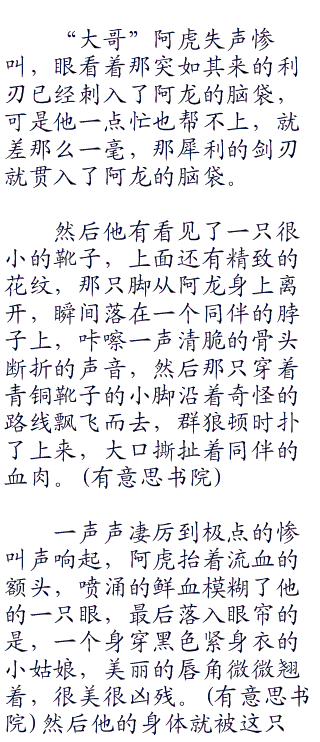 “大哥”阿虎失声惨
叫，眼看着那突如其来的利
刃已经刺入了阿龙的脑袋，
可是他一点忙也帮不上，就
差那么一毫，那犀利的剑刃
就贯入了阿龙的脑袋。
然后他有看见了一只很
小的靴子，上面还有精致的
花纹，那只脚从阿龙身上离
开，瞬间落在一个同伴的脖
子上，咔嚓一声清脆的骨头
断折的声音，然后那只穿着
青铜靴子的小脚沿着奇怪的
路线飘飞而去，群狼顿时扑
了上来，大口撕扯着同伴的
血肉。(有意思书院)
一声声凄厉到极点的惨
叫声响起，阿虎抬着流血的
额头，喷涌的鲜血模糊了他
的一只眼，最后落入眼帘的
是，一个身穿黑色紧身衣的
小姑娘，美丽的唇角微微翘
着，很美很凶残。(有意思书
院)然后他的身体就被这只